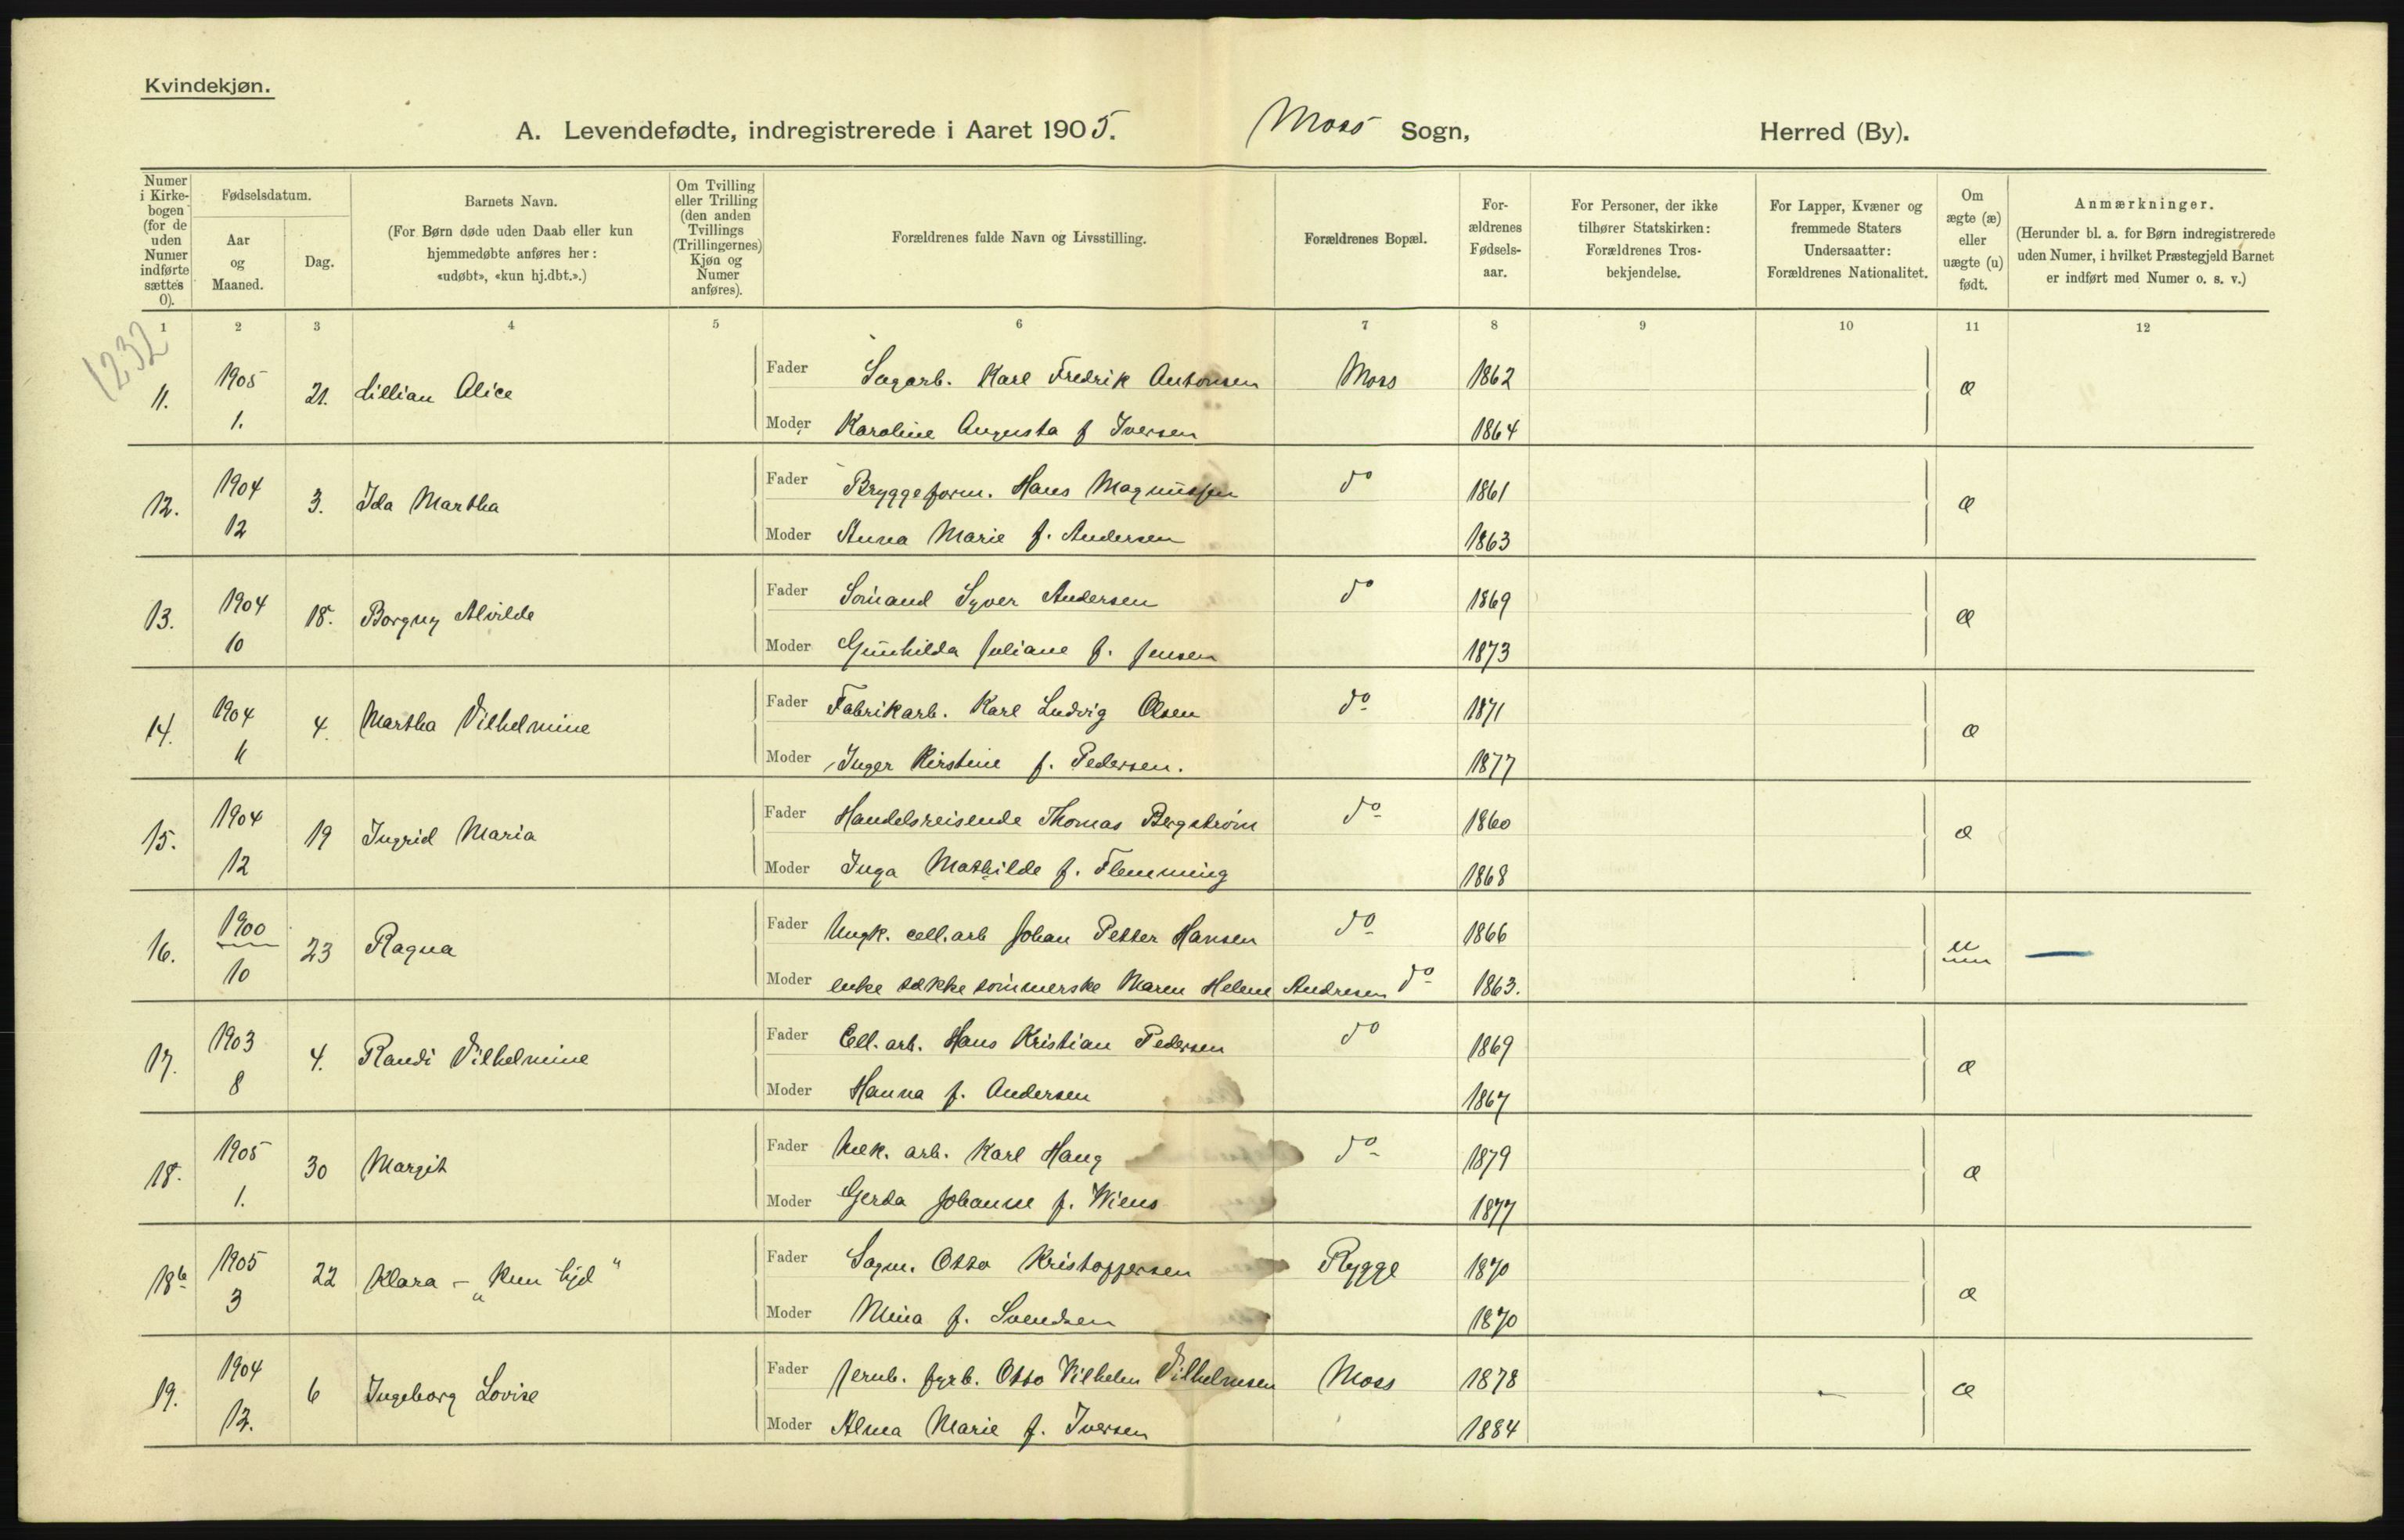 Kvindekjøn.
A. Levendefødte, indregistrerede i Aaret 1905. Moss Sogn, Herred (By).
Numer i Kirkebogen (for de uden Numer indførte sættes 0).
Fødselsdatum.
Aar og Maaned.
Dag.
Barnets Navn.
(For Børn døde uden Daab eller kun hjemmedøbte anføres her: «udøbt», «kun hj.dbt.».)
Om Tvilling eller Trilling (den anden Tvillings (Trillingernes) Kjøn og Numer anføres).
Forældrenes fulde Navn og Livsstilling.
Forældrenes Bopæl.
Forældrenes Fødselsaar.
For Personer, der ikke tilhører Statskirken: Forældrenes Trosbekjendelse.
For Lapper, Kvæner og fremmede Staters Undersaatter: Forældrenes Nationalitet.
Om ægte (æ) eller uægte (u) født.
Anmærkninger.
(Herunder bl. a. for Børn indregistrerede uden Numer, i hvilket Præstegjeld Barnet er indført med Numer o. s. v.)
1 2 3 4 5 6 7 8 9 10 11 12
1232
11. 1905 1. 21. Lillian Alice
Fader Sagarb. Karl Fredrik Antonsen Moss 1862 æ
Moder Karoline Augusta f Iversen 1864
12. 1904 12 3. Ida Martha
Fader Bryggeform. Hans Magnussen do 1861 æ
Moder Anna Marie f. Andersen 1863
13. 1904 10 18. Borgny Alvilde
Fader Sömand Syver Andersen do 1869 æ
Moder Gunhilda Juliane f. Jensen 1873
14. 1904 11 4. Martha Vilhelmine
Fader Fabrikarb. Karl Ludvig Olsen do 1871 æ
Moder Inger Kirstine f. Pedersen. 1877
15. 1904 12 19 Ingrid Maria
Fader Handelsreisende Thomas Bergström do 1860 æ
Moder Inga Mathilde f. Flemming 1868
16. 1900 10 23 Ragna
Fader Ungk. cell.arb Johan Petter Hansen do 1866 u
Moder enke sækkesömmerske Maren Helene Andresen do 1863.
17. 1903 8 4. Randi Vilhelmine
Fader Cell. arb. Hans Kristian Pedersen do 1869 æ
Moder Hanna f. Andersen 1867
18. 1905 1. 30 Margit
Fader Mek. arb. Karl Haug do 1879 æ
Moder Gerda Johanne f. Wiens 1877
18b 1905 3 22 Klara - „Kun hjd“
Fader Sagm. Otto Kristoffersen Rygge 1870 æ
Moder Mina f. Svendsen 1870
19. 1904 12. 6 Ingeborg Lovise
Fader Jernb. fyrb. Otto Vilhelm Vilhelmsen Moss 1878 æ
Moder Alma Marie f. Iversen 1884